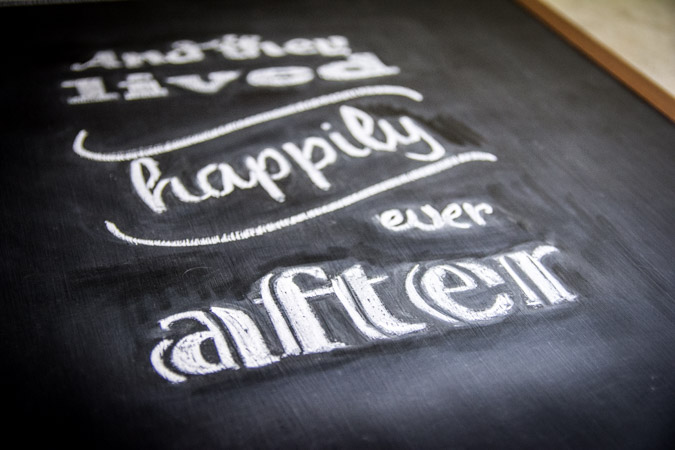 And they
lived
happily
ever
after